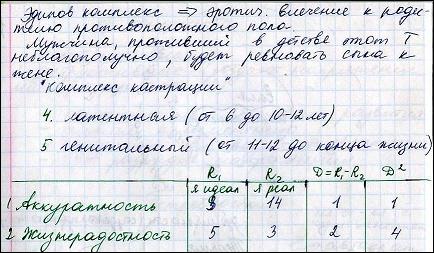 Эдипов комплекс => эротич. влечение к роди-
телю противоположного пола
Мужчина, проживший в детстве этот Т
неблагополучно, будет ревновать сына к
жене.
"Комплекс кастрации"
4. латентная (от 6 до 10-12 лет)
5 генитальный (от 11-12 до конца жизни)
R₁ R₂ D=R₁-R₂ D²
Я идеал Я реал
1 Аккуратность 14 1 1
2 Жизнерадостность 5 3 2 4